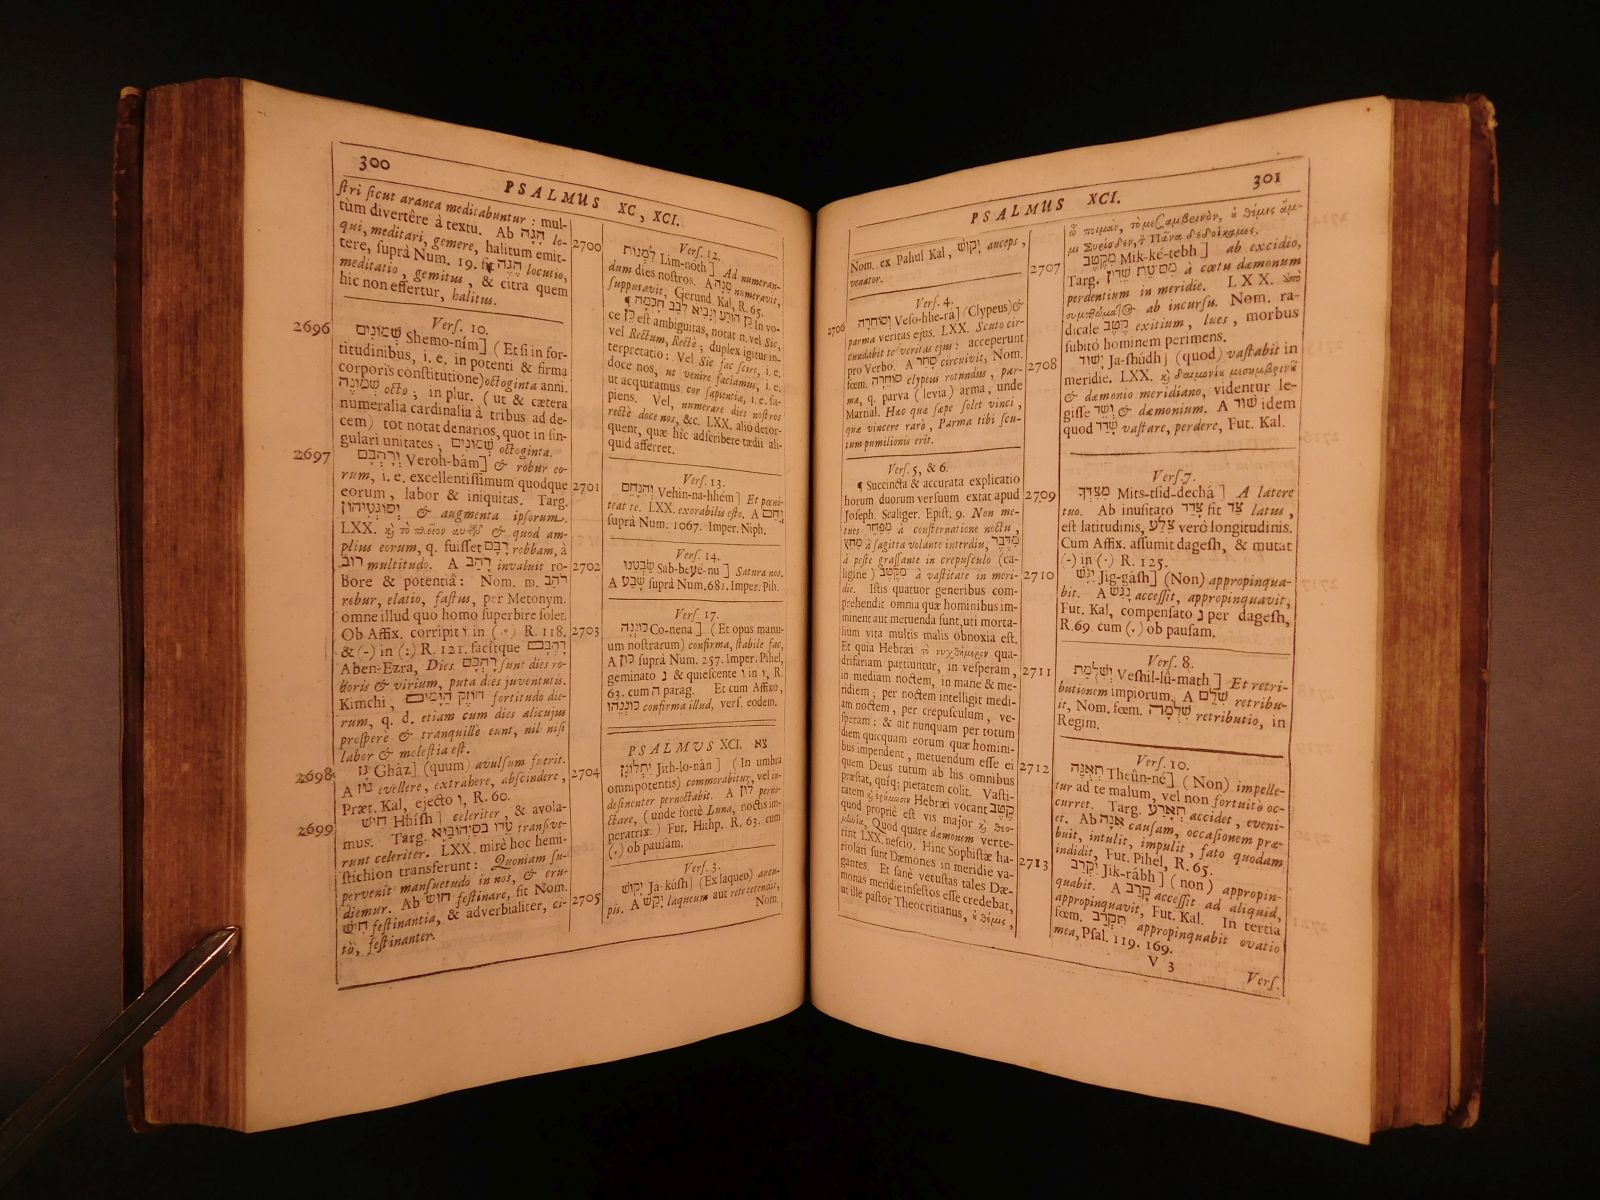 300
PSALMUS XC, XCI.
ſtri ſicut aranea meditabuntur : mul-
tùm divertêre à textu. Ab הָגָה lo-
qui, meditari, gemere, halitum emit-
tere, ſuprà Num. 19. fit הֶגֶה locutio,
meditatio, gemitus, & citra quem
hic non effertur, halitus.
Verſ. 10.
2696
שְׁמוֹנִים Shemo-ním] (Et ſi in for-
titudinibus, i. e. in potenti & firma
corporis conſtitutione) octoginta anni.
שְׁמוֹנָה octo ; in plur. (ut & cætera
numeralia cardinalia à tribus ad de-
cem) tot notat denarios, quot in ſin-
gulari unitates ; שְׁמוֹנִים octoginta.
2697
וְרָהְבָּם Veroh-bám] & robur eo-
rum, i. e. excellentiſſimum quodque
eorum, labor & iniquitas. Targ.
& augmenta ipſorum.
LXX. καὶ τὸ πλεῖον αὐτῶν & quod am-
plius eorum, q. fuiſſet רֻבָּם robbam, à
רוֹב multitudo. A רָהַב invaluit ro-
bore & potentiâ: Nom. m. רֹהַב
robur, elatio, faſtus, per Metonym.
omne illud quo homo ſuperbire ſolet.
Ob Affix. corripit ו in (ָ) R. 118.
& (-) in (:) R. 121. facitque רָהְבָּם
Aben-Ezra, Dies רָהְבָּם ſunt dies ro-
boris & virium, puta dies juventutis.
Kimchi, חוֹזֶק הַיָּמִים fortitudo die-
rum, q. d. etiam cum dies alicujus
proſperè & tranquillè eunt, nil niſi
labor & moleſtia eſt.
2698
גָּז Gház] (quum) avulſum fuerit.
A גּוּז evellere, extrahere, abſcindere,
Præt. Kal, ejecto ו, R. 60.
2699
חִישׁ Hhiſh] celeriter, & avola-
mus. Targ. tranſive-
runt celeriter. LXX. mirè hoc hemi-
ſtichion transferunt : Quoniam ſu-
pervenit manſuetudo in nos, & eru-
diemur. Ab חוּשׁ feſtinare, fit Nom.
חִישׁ feſtinantia, & adverbialiter, ci-
tò, feſtinanter.
Verſ. 12.
2700
לִמְנוֹת Lim-nóth] Ad numeran-
dum dies noſtros. A מָנָה numeravit,
ſupputavit, Gerund. Kal, R. 65.
¶ כֵּן הוֹדַע וְנָבִיא לְבַב חָכְמָה In vo-
ce כֵּן eſt ambiguitas, notat n. vel Sic,
vel Rectum, Rectè ; duplex igitur in-
terpretatio : Vel Sic fac ſcire, i. e.
doce nos, ut venire faciamus, i. e.
ut acquiramus cor ſapientia, i. e. ſa-
piens. Vel, numerare dies noſtros
rectè doce nos, &c. LXX. aliò detor-
quent, quæ hîc adſcribere tædii ali-
quid afferret.
Verſ. 13.
2701
וְהִנָּחֵם Vehin-na-hhém] Et pœni-
teat te. LXX. exorabilis eſto. A נָחַם
ſuprà Num. 1067. Imper. Niph.
Verſ. 14.
2702
שַׂבְּעֵנוּ Sab-beyé-nu] Satura nos.
A שָׂבַע ſuprà Num. 681. Imper. Pih.
Verſ. 17.
2703
כּוֹנְנָה Co-nena] (Et opus manu-
um noſtrarum) confirma, ſtabile fac,
A כּוּן ſuprà Num. 257. Imper. Pihel,
geminato נ & quieſcente ו in ו, R.
63. cum ה parag. Et cum Affixo,
כּוֹנְנֵהוּ confirma illud, verſ. eodem.
PSALMUS XCI. צא
2704
יִתְלוֹנָן Jith-lo-nàn] (In umbra
omnipotentis) commorabitur, vel in-
deſinenter pernoctabit. A לוּן perno-
ctare, (unde fortè Luna, noctis im-
peratrix.) Fut. Hithp. R. 63. cum
(ָ) ob pauſam.
Verſ. 3.
2705
יָקוּשׁ Ja-kúſh] (Ex laqueo) aucu-
pis. A יָקַשׁ laqueum aut rete tetendit,
Nom.
301
PSALMUS XCI.
Nom. ex Pahul Kal, יָקוּשׁ auceps,
venator.
Verſ. 4.
2706
וְסוֹחֵרָה Veſo-hhe-rà] (Clypeus) &
parma veritas ejus. LXX. Scuto cir-
cundabit te veritas ejus : acceperunt
pro Verbo. A סָחַר circuivit, Nom.
fœm. סוֹחֵרָה clypeus rotundus, par-
ma, q. parva (levia) arma, unde
Martial. Hac quæ ſæpe ſolet vinci,
quæ vincere rarò, Parma tibi ſcu-
tum pumilionis erit.
Verſ. 5, & 6.
¶ Succincta & accurata explicatio
horum duorum verſuum extat apud
Joſeph. Scaliger. Epiſt. 9. Non me-
tues à conſternatione noctu,
à ſagitta volante interdiu,
à peſte graſſante in crepuſculo (ca-
ligine) מִקֶּטֶב à vaſtitate in meri-
die. Iſtis quatuor generibus com-
prehendit omnia quæ hominibus im-
minent aut metuenda ſunt, uti morta-
lium vita multis malis obnoxia eſt.
Et quia Hebræi τὸ νυχθήμερον qua-
drifariam partiuntur, in veſperam,
in mediam noctem, in mane & me-
ridiem ; per noctem intelligit medi-
am noctem, per crepuſculum, ve-
ſperam : & ait nunquam per totum
diem quicquam eorum quæ homini-
bus impendent, metuendum eſſe ei
quem Deus tutum ab his omnibus
præſtat, quiſq; pietatem colit. Vaſti-
tatem Hebræi vocant קֶטֶב
quod propriè eſt vis major
Quod quare dæmonem verte-
rint LXX. neſcio. Hinc Sophiſtæ ha-
riolati ſunt Dæmones in meridie va-
gantes. Et ſanè vetuſtas tales Dæ-
monas meridie infeſtos eſſe credebat,
ut ille paſtor Theocritianus, ὀ θέμις,
ὦ ποιμὰν, τὸ μεσαμβρινὸν, ὀ θέμις ἄμ-
μι Συρίσδεν, τὸν Πᾶνα δεδοίκαμες.
2707
מִקֶּטֶב Mik-ké-tebh] ab excidio,
Targ. à cœtu dæmonum
perdentium in meridie. LXX. ἀπὸ
συμπτώματος ab incurſu. Nom. ra-
dicale קֶטֶב exitium, lues, morbus
ſubitò hominem perimens.
2708
יָשׁוּד Ja-ſhúdh] (quod) vaſtabit in
meridie. LXX. καὶ δαιμονίου μεσημβρινοῦ
& dæmonio meridiano, videntur le-
giſſe וְשֵׁד & dæmonium. A שׁוּד idem
quod שָׁדַד vaſtare, perdere, Fut. Kal.
Verſ. 7.
2709
מִצִּדְּךָ Mits-tſid-dechá] A latere
tuo. Ab inuſitato צָדַד fit צַד latus,
eſt latitudinis, צֵלָע verò longitudinis.
Cum Affix. aſſumit dageſh, & mutat
(-) in (ִ) R. 125.
2710
יִגָּשׁ Jig-gáſh] (Non) appropinqua-
bit. A נָגַשׁ acceſſit, appropinquavit,
Fut. Kal, compenſato נ per dageſh,
R. 69. cum (ָ) ob pauſam.
Verſ. 8.
2711
וְשִׁלֻּמַת Veſhil-lú-math] Et retri-
butionem impiorum. A שִׁלֵּם retribu-
it, Nom. fœm. שִׁלֻּמָה retributio, in
Regim.
Verſ. 10.
2712
תְאֻנֶּה Theùn-né] (Non) impelle-
tur ad te malum, vel non fortuitò oc-
curret. Targ. accidet, eveni-
et. Ab אָנָה cauſam, occaſionem præ-
buit, intulit, impulit, fato quodam
indidit, Fut. Pihel, R. 65.
2713
יִקְרַב Jik-rábh] (non) appropin-
quabit. A קָרַב acceſſit ad aliquid,
appropinquavit, Fut. Kal. In tertia
fœm. תִּקְרַב appropinquabit ovatio
mea, Pſal. 119. 169.
V 3
Verſ.